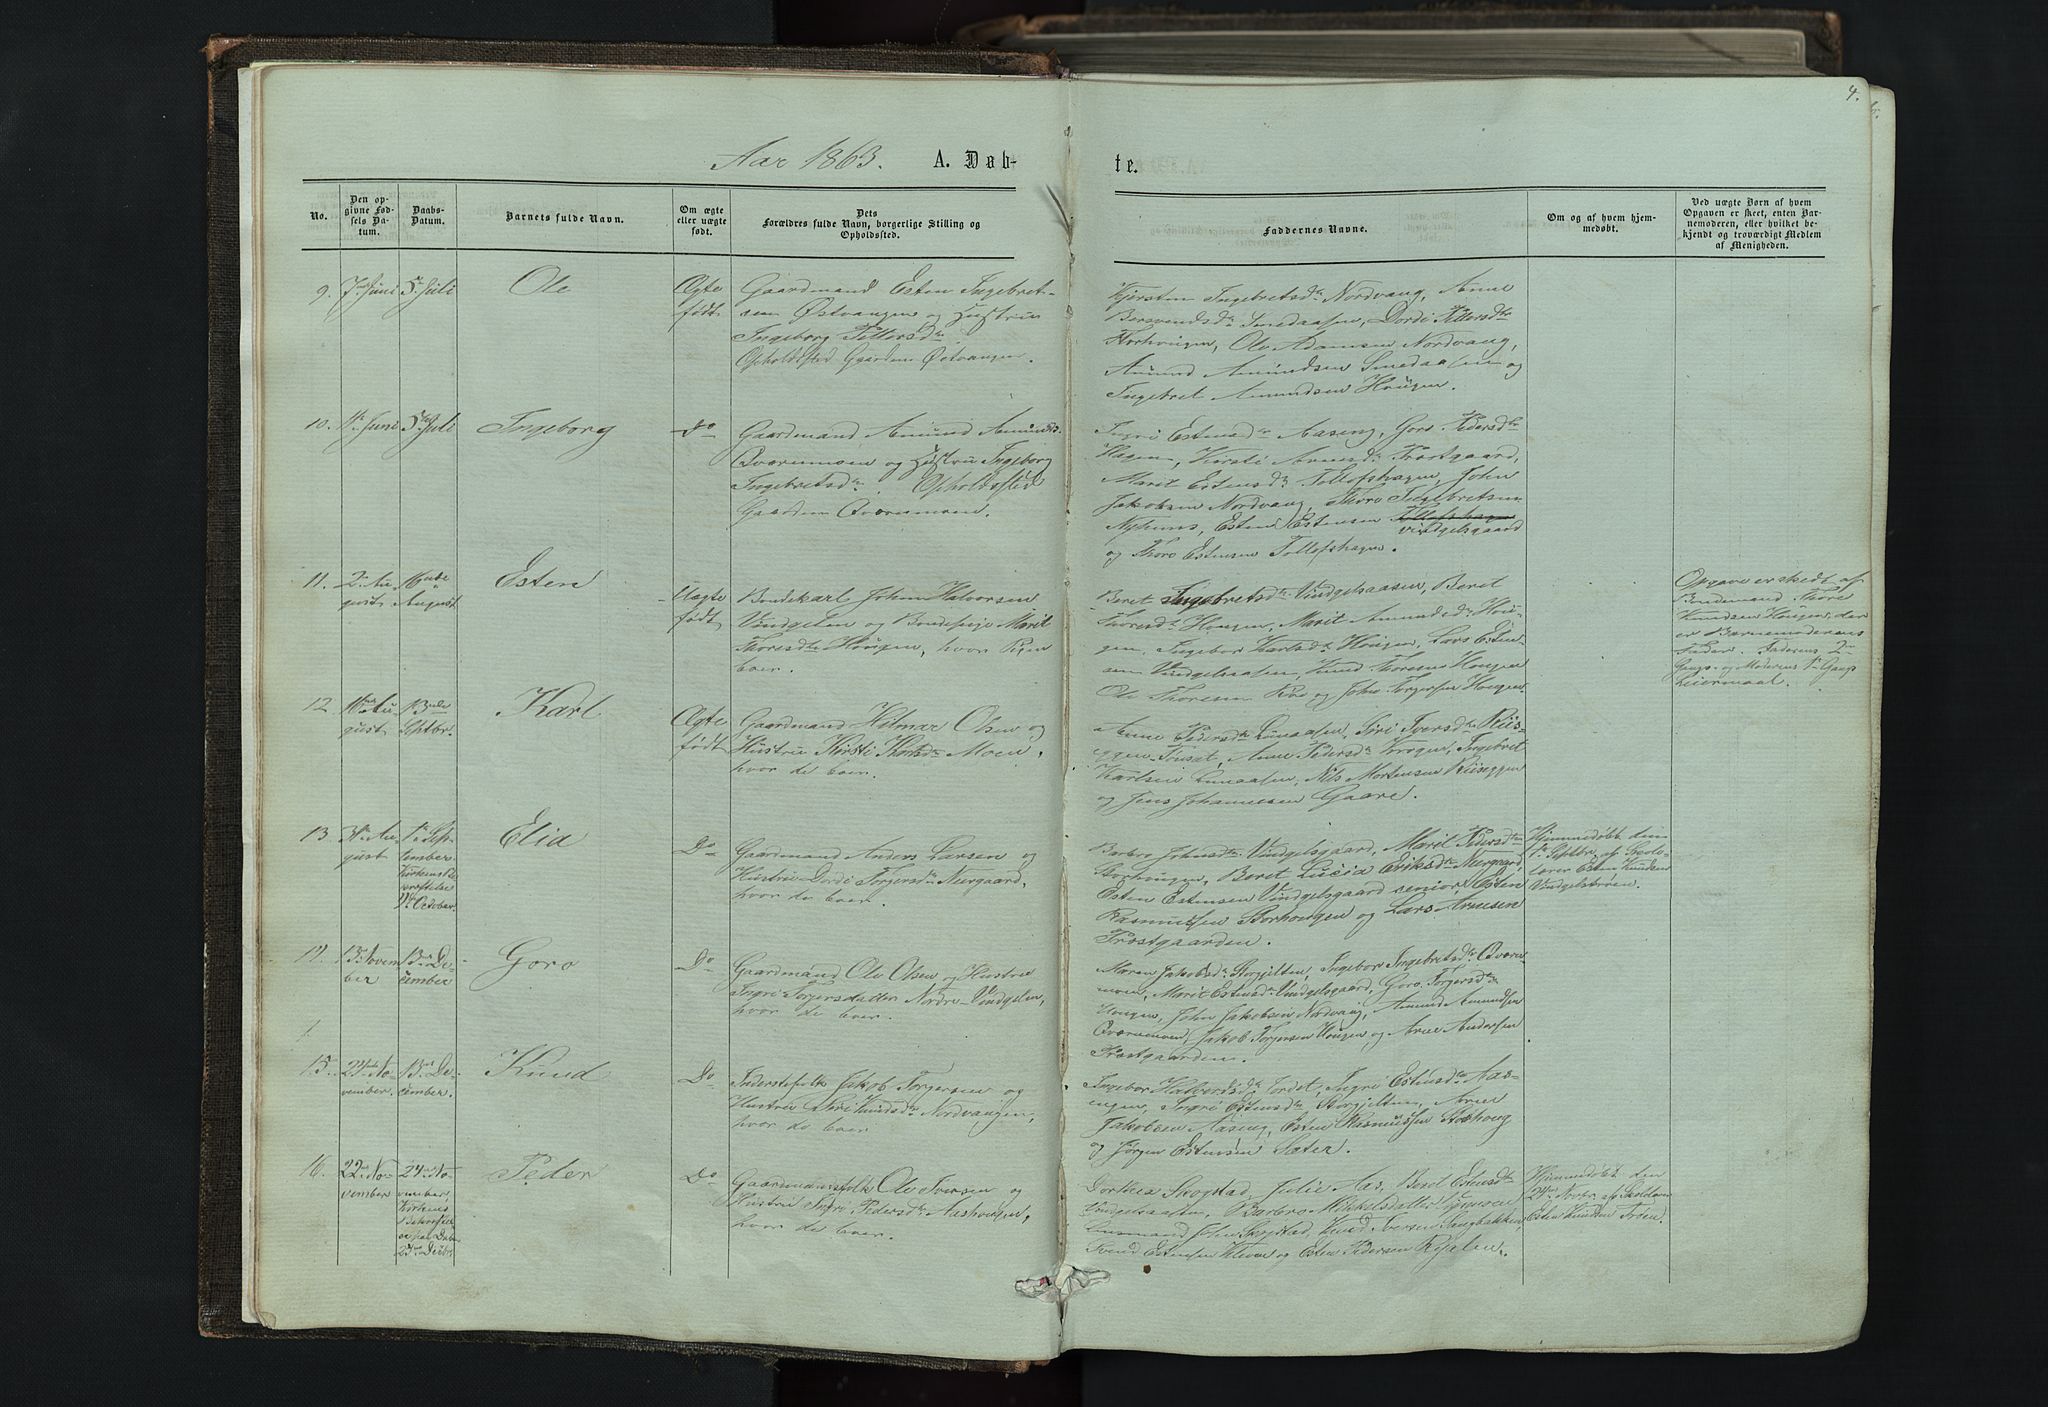 4.
Aar 1863. A. Døb-
te.
No.
Den op-
givne Fød-
sels Da-
tum.
Daabs-
Datum.
Barnets fulde Navn.
Om ægte
eller uægte
født.
Dets
Forældres fulde Navn, borgerlige Stilling og
Opholdssted.
Faddernes Navne.
Om og af hvem hjem-
medøbt.
Ved uægte Børn af hvem
Opgaven er skeet, enten Bar-
nemoderen, eller hvilket be-
kjendt og troværdigt Medlem
af Menigheden.
9.
Juni
5. Juli
Ole
Ægte
født
Gaardmand Esten Ingebret-
sen Østvangen og Hustru
Ingeborg
Opholdssted Gaarden Østvangen.
Kjersten Ingebretsdr Nordvang, Anne
Smedaasen, Dordi
Ole Adamsen Nordvang,
Amund Amundsen Smedaasen og
Ingebret Amundsen Hougen.
10.
Juni
5te Juli
Ingeborg
Do
Gaardmand Amund Amunds.
Qværnmoen og Hustru Ingeborg
Ingebretsdr. Opholdssted
Gaarden Qværnmoen.
Ingri Estensdr Aaseng, Goro Pedersdtr
Hagen, Kirsti Arnesdr Trøstgaard,
Marit Estensdr Tollefshagen, John
Jakobsen Nordvang, Thore Ingebretsen
Esten Estensen Tollefshagen
Vindgelsgaard
og Thore Estensen Tollefshagen.
11.
2. Au-
gust
16de
August
Esten
Uægte
født
Bondekarl Johan Halvorsen
Vindgelen og Bondepige Marit
Thoresdtr Hougen, hvor Pigen
boer
Beret Ingebretsdr Vindgelsaasen, Beret
Hougen, Marit Amundsdr Hou-
gen, Ingebor Karlsdr Hougen, Lars Esten-
sen Vindgelsaasen, Knud Thoresen Hougen
Ole Thoresen og John Torgersen Hougen
Opgave er skedt af
Bondemand Thore
Knudsen Hougen, der
er Barnemoderens
Fader. Faderens 2den
Gangs- og Moderens 1ste Gangs
Leiermaal.
12.
Au-
gust
13de
Septbr.
Karl
Ægte
født
Gaardmand Hilmar Olsen og
Hustru Kirsti Karlsdr Moen,
hvor de boer.
Anne Pedersdr Lunaasen, Siri Iversdtr Riis-
eggen Tønset, Anne Pedersdr Krogen, Ingebret
Karlsen Lunaasen, Nils Mortensen Riiseggen
og Jens Johannesen Gaare.
13.
Au-
gust
1te Sep-
tember
9de October.
Elia
Do
Gaardmand Anders Larsen og
Hustru Dordi Torgersdr Neergaard,
hvor de boer.
Barbro Johnsdtr Vindgelsgaard, Marit Pedersdtr
Storhougen, Beret Lucia Eriksdr Neergaard,
Esten Estensen Vindgelsgaard senior, Esten
Rasmussen Storhougen og Lars Arnesen
Trøstgaarden.
Hjemmedøbt den
1te Septbr. af Skole-
lærer Esten Knudsen
Vindgelstrøen.
Novem-
ber
13de De-
cember
Goro
Do
Gaardmand Ole Olsen og Hustru
Ingri Torgersdatter Nordre-Vindgelen,
hvor de boer.
Maren Jakobsdr Storfjelten, Ingebor Ingebretsdr Qværn-
moen, Marit Estensdr Vindgelsgaard, Goro Torgersdr
Hougen, John Jakobsen Nordvang, Amund Amundsen
Qværnmoen, Jakob Torgersen Hougen og Arne Andersen
Trøstgaarden.
15.
No-
vember.
13de De-
cember.
Knud
Do
Inderstefolk Jakob Torgersen og
Hustru Siri Knudsdr Nordvangen,
hvor de boer.
Ingebor Halvorsdr Jordet, Ingri Estensdr Aas-
engen, Ingri Estensdr Storfjelten, Arne
Jakobsen Aaseng, Esten Rasmussen Storhoug
og Jørgen Estensen Sæter.
16.
22de No-
vember
24de No-
vember.
Kirkens
27de Decbr.
Peder
Do
Gaardmandsfolk Ole Iversen og
Hustru Ingri Pedersdr Aashougen,
hvor de boer.
Dorthea Skogstad, Julie Aas, Beret Estensdr
Vindgelsaasen, Barbro Mikkelsdatter
John Skogstad, Knud Iversen
Svend Estensen og Esten Pedersen
Hjemmedøbt den
24de Novbr. af Skolelærer
Esten Knudsen Trøen.